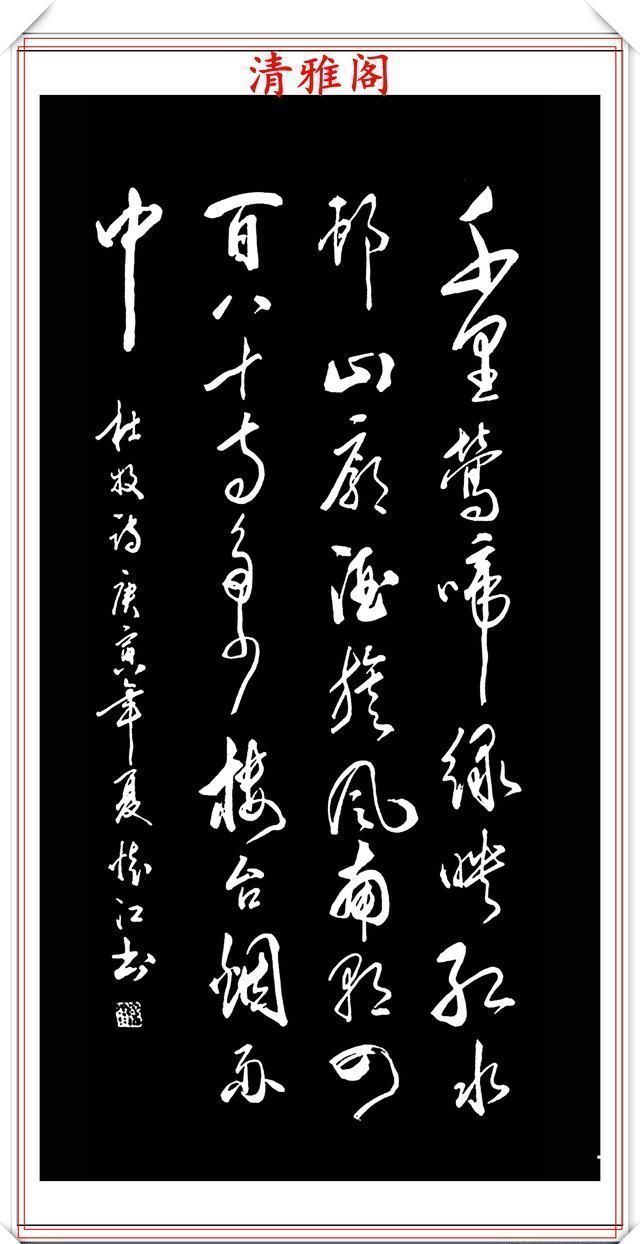 清雅阁
千里莺啼绿映红水
邨山廓酒旗风南朝四
百八十寺多少楼台烟雨
中
杜牧诗庚寅年夏怀江书